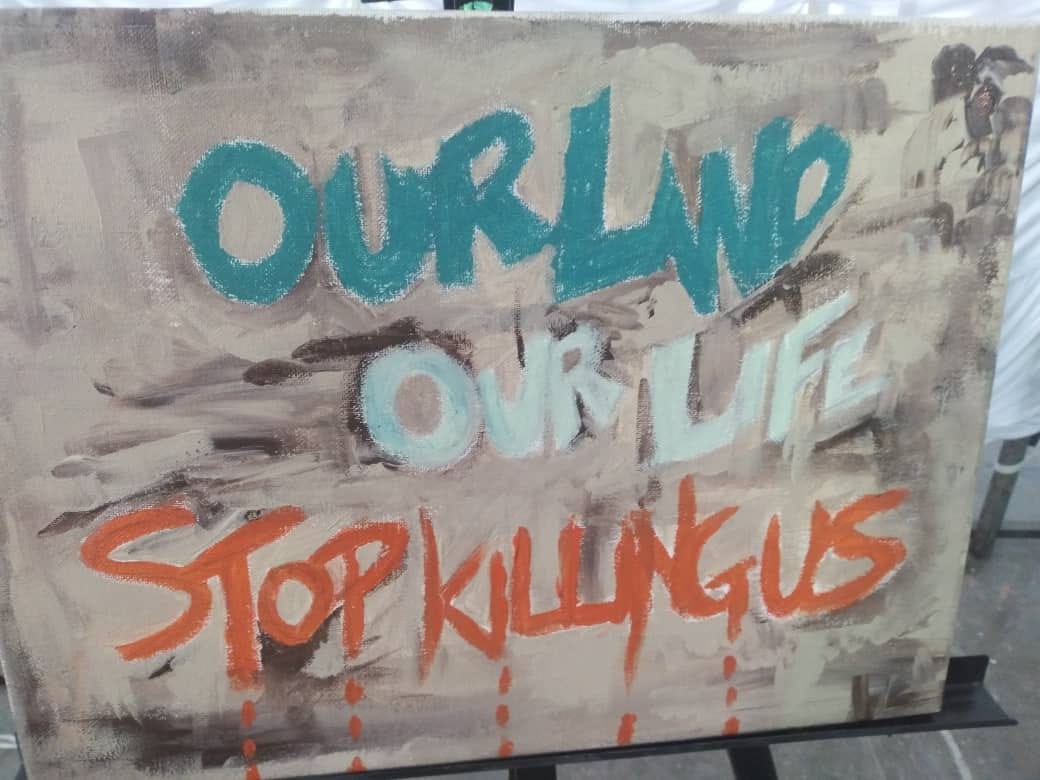 OUR LAND
OUR LIFE
STOP KILLING US